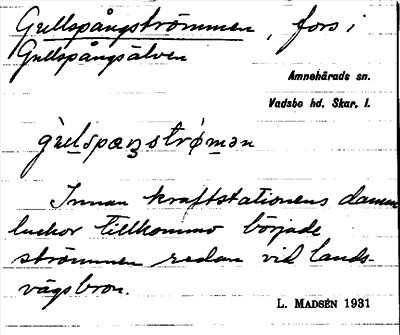 Gullspångströmmen, fors i
Gullspångsälven
Amnehärads sn.
Vadsbo hd. Skar. l.
Innan kraftstationens damm-
luckor tillkommo började
strömmen redan vid lands-
vägsbron.
L. MADSÉN 1931